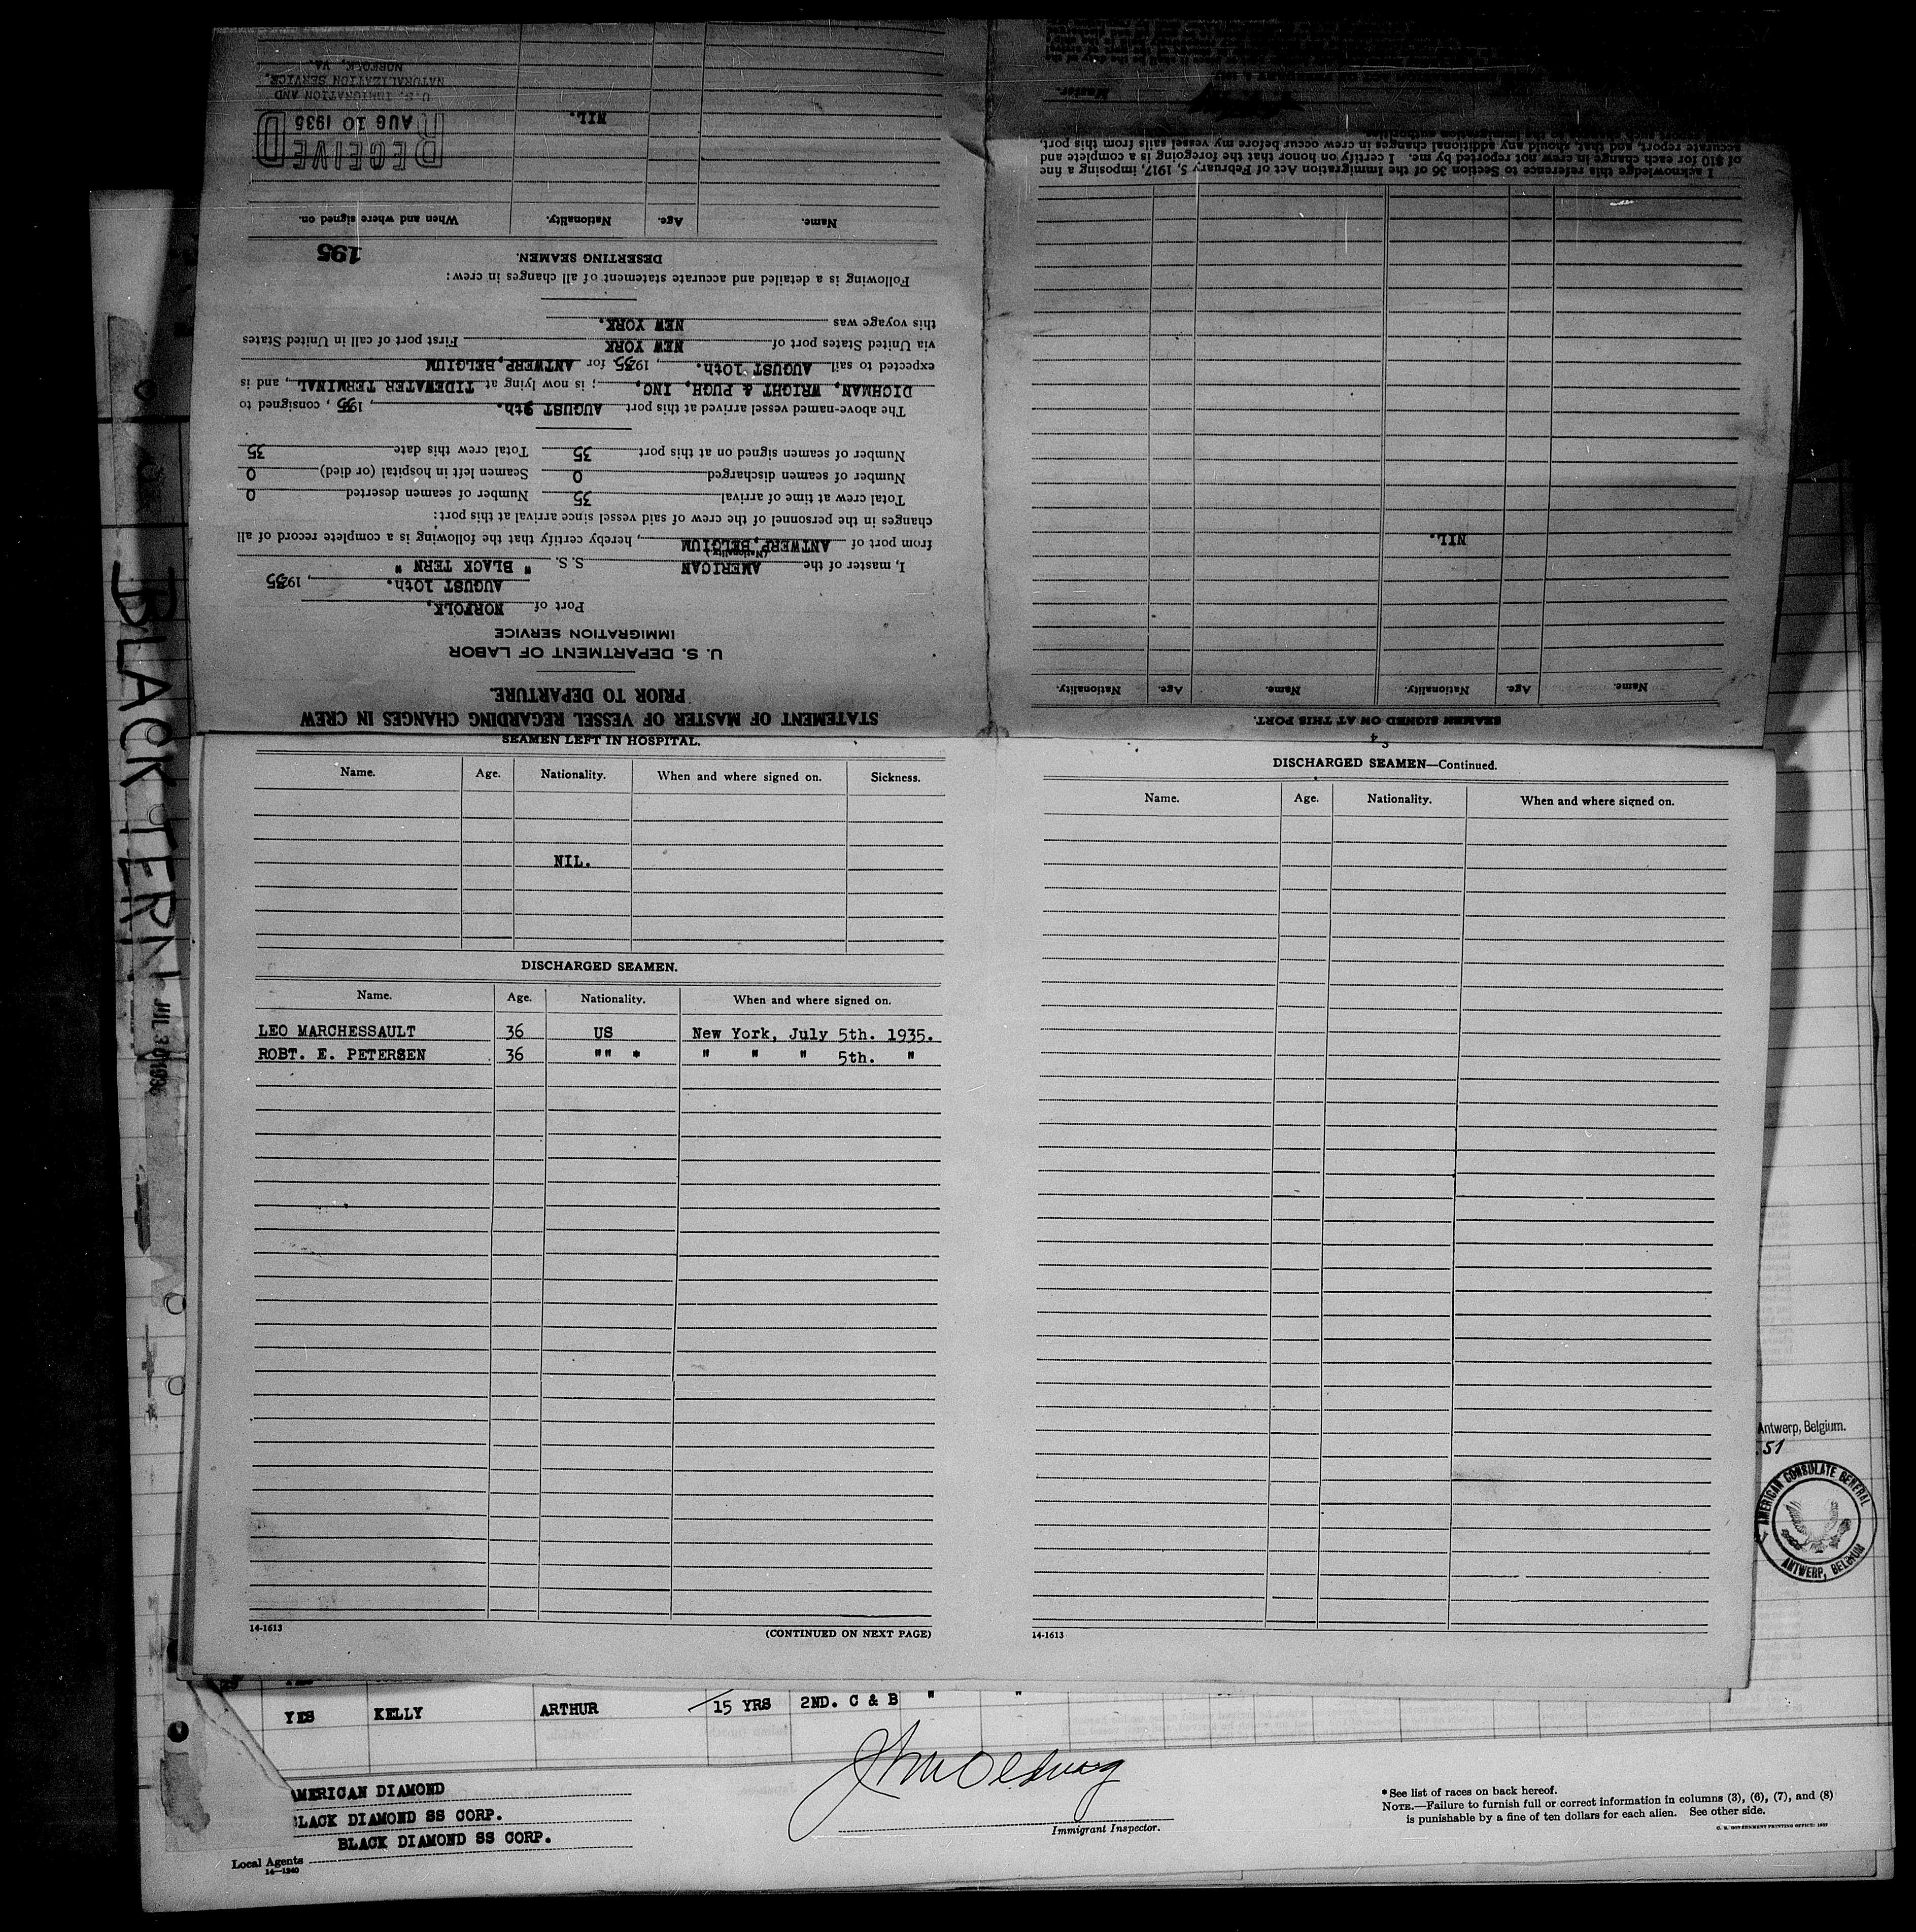 STATEMENT OF MASTER OF VESSEL REGARDING CHANGES IN CREW
PRIOR TO DEPARTURE.
U. S. DEPARTMENT OF LABOR
IMMIGRATION SERVICE
Port of NORFOLK,
AUGUST 10th. , 1935
I, master of the AMERICAN S. S. " BLACK TERN "
(Nationality)
from port of ANTWERP, BELGIUM , hereby certify that the following is a complete record of all
changes in the personnel of the crew of said vessel since arrival at this port:
Total crew at time of arrival 35 Number of seamen deserted 0
Number of seamen discharged 0 Seamen left in hospital (or died) 0
Number of seamen signed on at this port 35 Total crew this date 35
The above-named vessel arrived at this port AUGUST 9th. , 1935 , consigned to
DICHMAN, WRIGHT & PUGH, INC, ; is now lying at TIDEWATER TERMINAL , and is
expected to sail AUGUST 10th. , 1935 for ANTWERP, BELGIUM
via United States port of NEW YORK First port of call in United States
this voyage was NEW YORK.
Following is a detailed and accurate statement of all changes in crew:
DESERTING SEAMEN.
195
Name. Age. Nationality. When and where signed on.
NIL.
RECEIVED
AUG 10 1935
U. S. IMMIGRATION AND
NATURALIZATION SERVICE,
NORFOLK, VA.
4
SEAMEN SIGNED ON AT THIS PORT.
Name. Age. Nationality. Name. Age. Nationality.
NIL.
I acknowledge this reference to Section 36 of the Immigration Act of February 5, 1917, imposing a fine
of $10 for each change in crew not reported by me. I certify on honor that the foregoing is a complete and
accurate report, and that, should any additional changes in crew occur before my vessel sails from this port,
Master.
SEAMEN LEFT IN HOSPITAL.
Name. Age. Nationality. When and where signed on. Sickness.
NIL.
DISCHARGED SEAMEN.
Name. Age. Nationality. When and where signed on.
LEO MARCHESSAULT 36 US New York, July 5th. 1935.
ROBT. E. PETERSEN 36 "" * " " " 5th. "
14-1613 (CONTINUED ON NEXT PAGE)
DISCHARGED SEAMEN—Continued.
Name. Age. Nationality. When and where signed on.
14-1613
BLACK TERN JUL 30 1936
Antwerp, Belgium.
51
AMERICAN CONSULATE GENERAL
ANTWERP, BELGIUM
YES KELLY ARTHUR 15 YRS 2ND. C & B " "
AMERICAN DIAMOND
BLACK DIAMOND SS CORP.
BLACK DIAMOND SS CORP.
Local Agents
14—1240
Immigrant Inspector.
* See list of races on back hereof.
NOTE.—Failure to furnish full or correct information in columns (3), (6), (7), and (8)
is punishable by a fine of ten dollars for each alien. See other side.
U. S. GOVERNMENT PRINTING OFFICE: